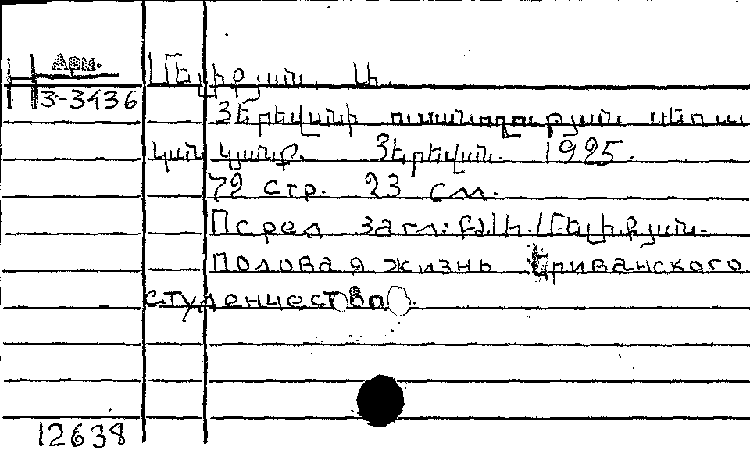 Арм.
Մելիքյան Ա.
3-3436
Յերեվանի ուսանողության սեռա
կան կյանք. Յերեվան. 1925.
72 стр. 23 см.
Перед загл: Մելիքյան.
Половая жизнь Ериванского
студенчества.
12638